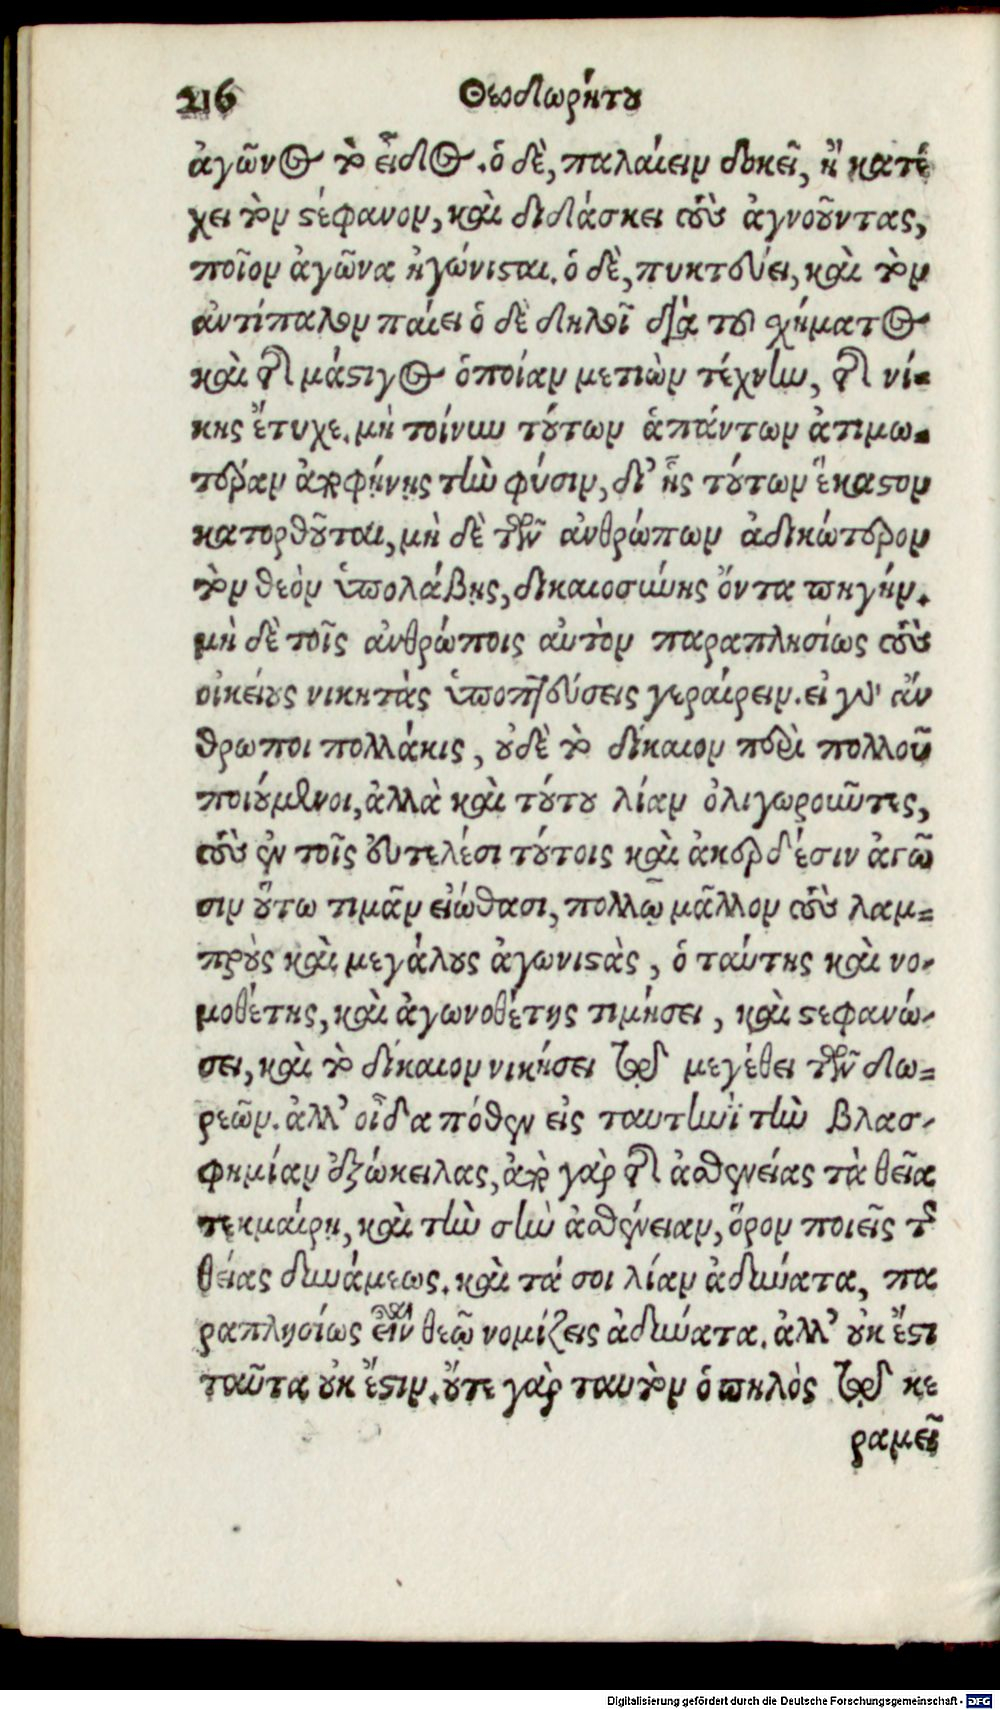 216 Θεοδωρήτου
ἀγῶνος τὸ εἶδος. ὁ δὲ, παλαίειν δοκεῖ, ἢ κατέ
χει τὸν στέφανον, καὶ διδάσκει τοὺς ἀγνοοῦντας,
ποῖον ἀγῶνα ἠγώνισται. ὁ δὲ, πυκτεύει, καὶ τὸν
ἀντίπαλον παίει ὁ δὲ δηλοῖ διὰ τοῦ σχήματος
καὶ τῆς μάστιγος ὁποίαν μετιὼν τέχνην, τῆς νί-
κης ἔτυχε. μὴ τοίνυν τούτων ἁπάντων ἀτιμω-
τέραν ἀποφήνῃς τὴν φύσιν, δι’ ἧς τούτων ἕκαστον
κατορθοῦται, μὴ δὲ τῶν ἀνθρώπων ἀδικώτερον
τὸν θεὸν ὑπολάβῃς, δικαιοσύνης ὄντα πηγήν.
μὴ δὲ τοῖς ἀνθρώποις αὐτὸν παραπλησίως τοὺς
οἰκείους νικητὰς ὑποπτεύσεις γεραίρειν. εἰ γὰρ ἄν
θρωποι πολλάκις, οὐδὲ τὸ δίκαιον περὶ πολλοῦ
ποιούμενοι, ἀλλὰ καὶ τούτου λίαν ὀλιγωροῦντες,
τοὺς ἐν τοῖς εὐτελέσι τούτοις καὶ ἀκερδέσιν ἀγῶ
σιν οὕτω τιμᾶν εἰώθασι, πολλῷ μᾶλλον τοὺς λαμ-
προὺς καὶ μεγάλους ἀγωνιστὰς, ὁ ταύτης καὶ νο-
μοθέτης, καὶ ἀγωνοθέτης τιμήσει, καὶ στεφανώ-
σει, καὶ τὸ δίκαιον νικήσει τῷ μεγέθει τῶν δω-
ρεῶν. ἀλλ’ οἶδα πόθεν εἰς ταυτηνῒ τὴν βλασ-
φημίαν ἐξώκειλας, ἀπὸ γὰρ τῆς ἀσθενείας τὰ θεῖα
τεκμαίρῃ, καὶ τὴν σὴν ἀσθένειαν, ὅρον ποιεῖς τῆς
θείας δυνάμεως. καὶ τά σοι λίαν ἀδύνατα, πα
ραπλησίως εἶναι θεῷ νομίζεις ἀδύνατα. ἀλλ’ οὐκ ἔστι
ταῦτα οὐκ ἔστιν. οὔτε γὰρ ταυτὸν ὁ πηλὸς τῷ κε
ραμεῖ
Digitalisierung gefördert durch die Deutsche Forschungsgemeinschaft - DFG